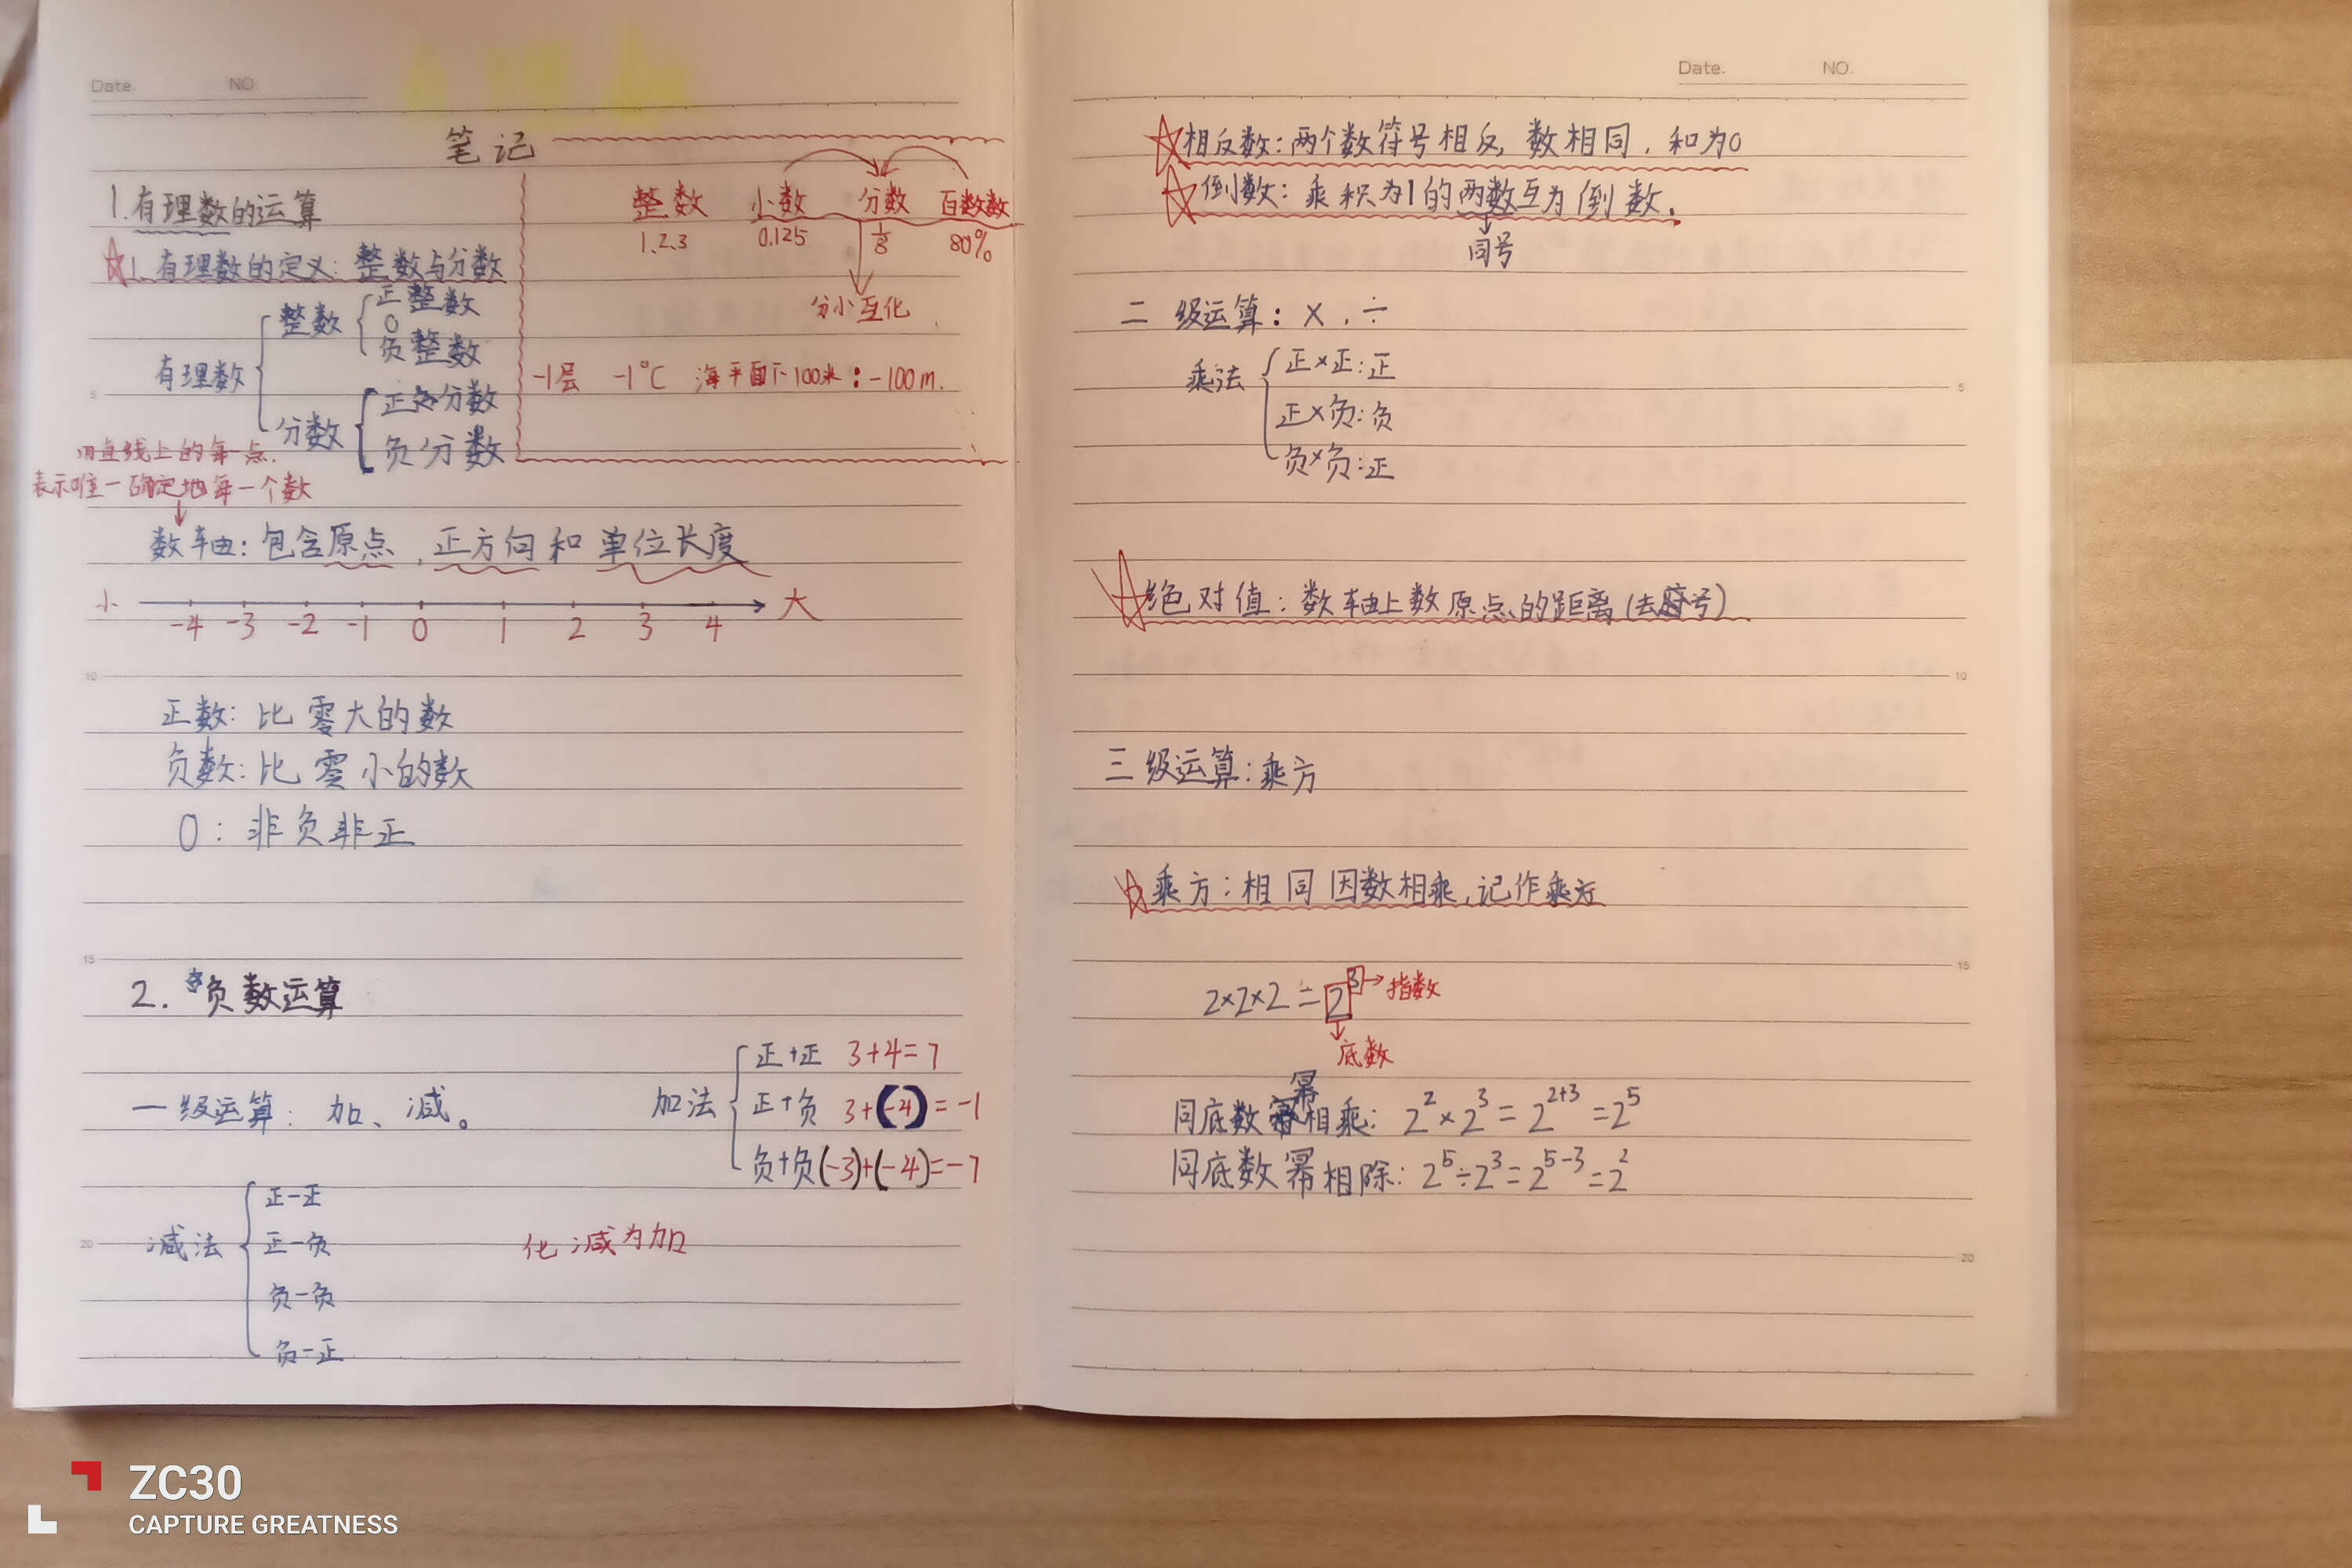 Date. NO.
笔记
1.有理数的运算
整数 小数 分数 百数数
1.2.3 0.125 1/8 80%
分小互化
☆1.有理数的定义:整数与分数
有理数
整数
正整数
0
负整数
分数
正分数
负分数
-1层 -1℃ 海平面下100米:-100m.
用直线上的每一点.
表示唯一确定地每一个数
数轴:包含原点,正方向和单位长度
小 -4 -3 -2 -1 0 1 2 3 4 大
正数:比零大的数
负数:比零小的数
0:非负非正
2.负数运算
一级运算:加、减。
加法
正+正 3+4=7
正+负 3+(-4)=-1
负+负(-3)+(-4)=-7
减法
正-正
正-负
负-负
负-正
化减为加
Date. NO.
☆相反数:两个数符号相反,数相同,和为0
☆倒数:乘积为1的两数互为倒数.
同号
二级运算:×.÷
乘法
正×正:正
正×负:负
负×负:正
☆绝对值:数轴上数原点的距离(去符号)
三级运算:乘方
☆乘方:相同因数相乘,记作乘方
2×2×2=2³→指数
底数
同底数幂相乘:2²×2³=2²⁺³=2⁵
同底数幂相除:2⁵÷2³=2⁵⁻³=2²
5
10
15
20
5
10
15
20
ZC30
CAPTURE GREATNESS